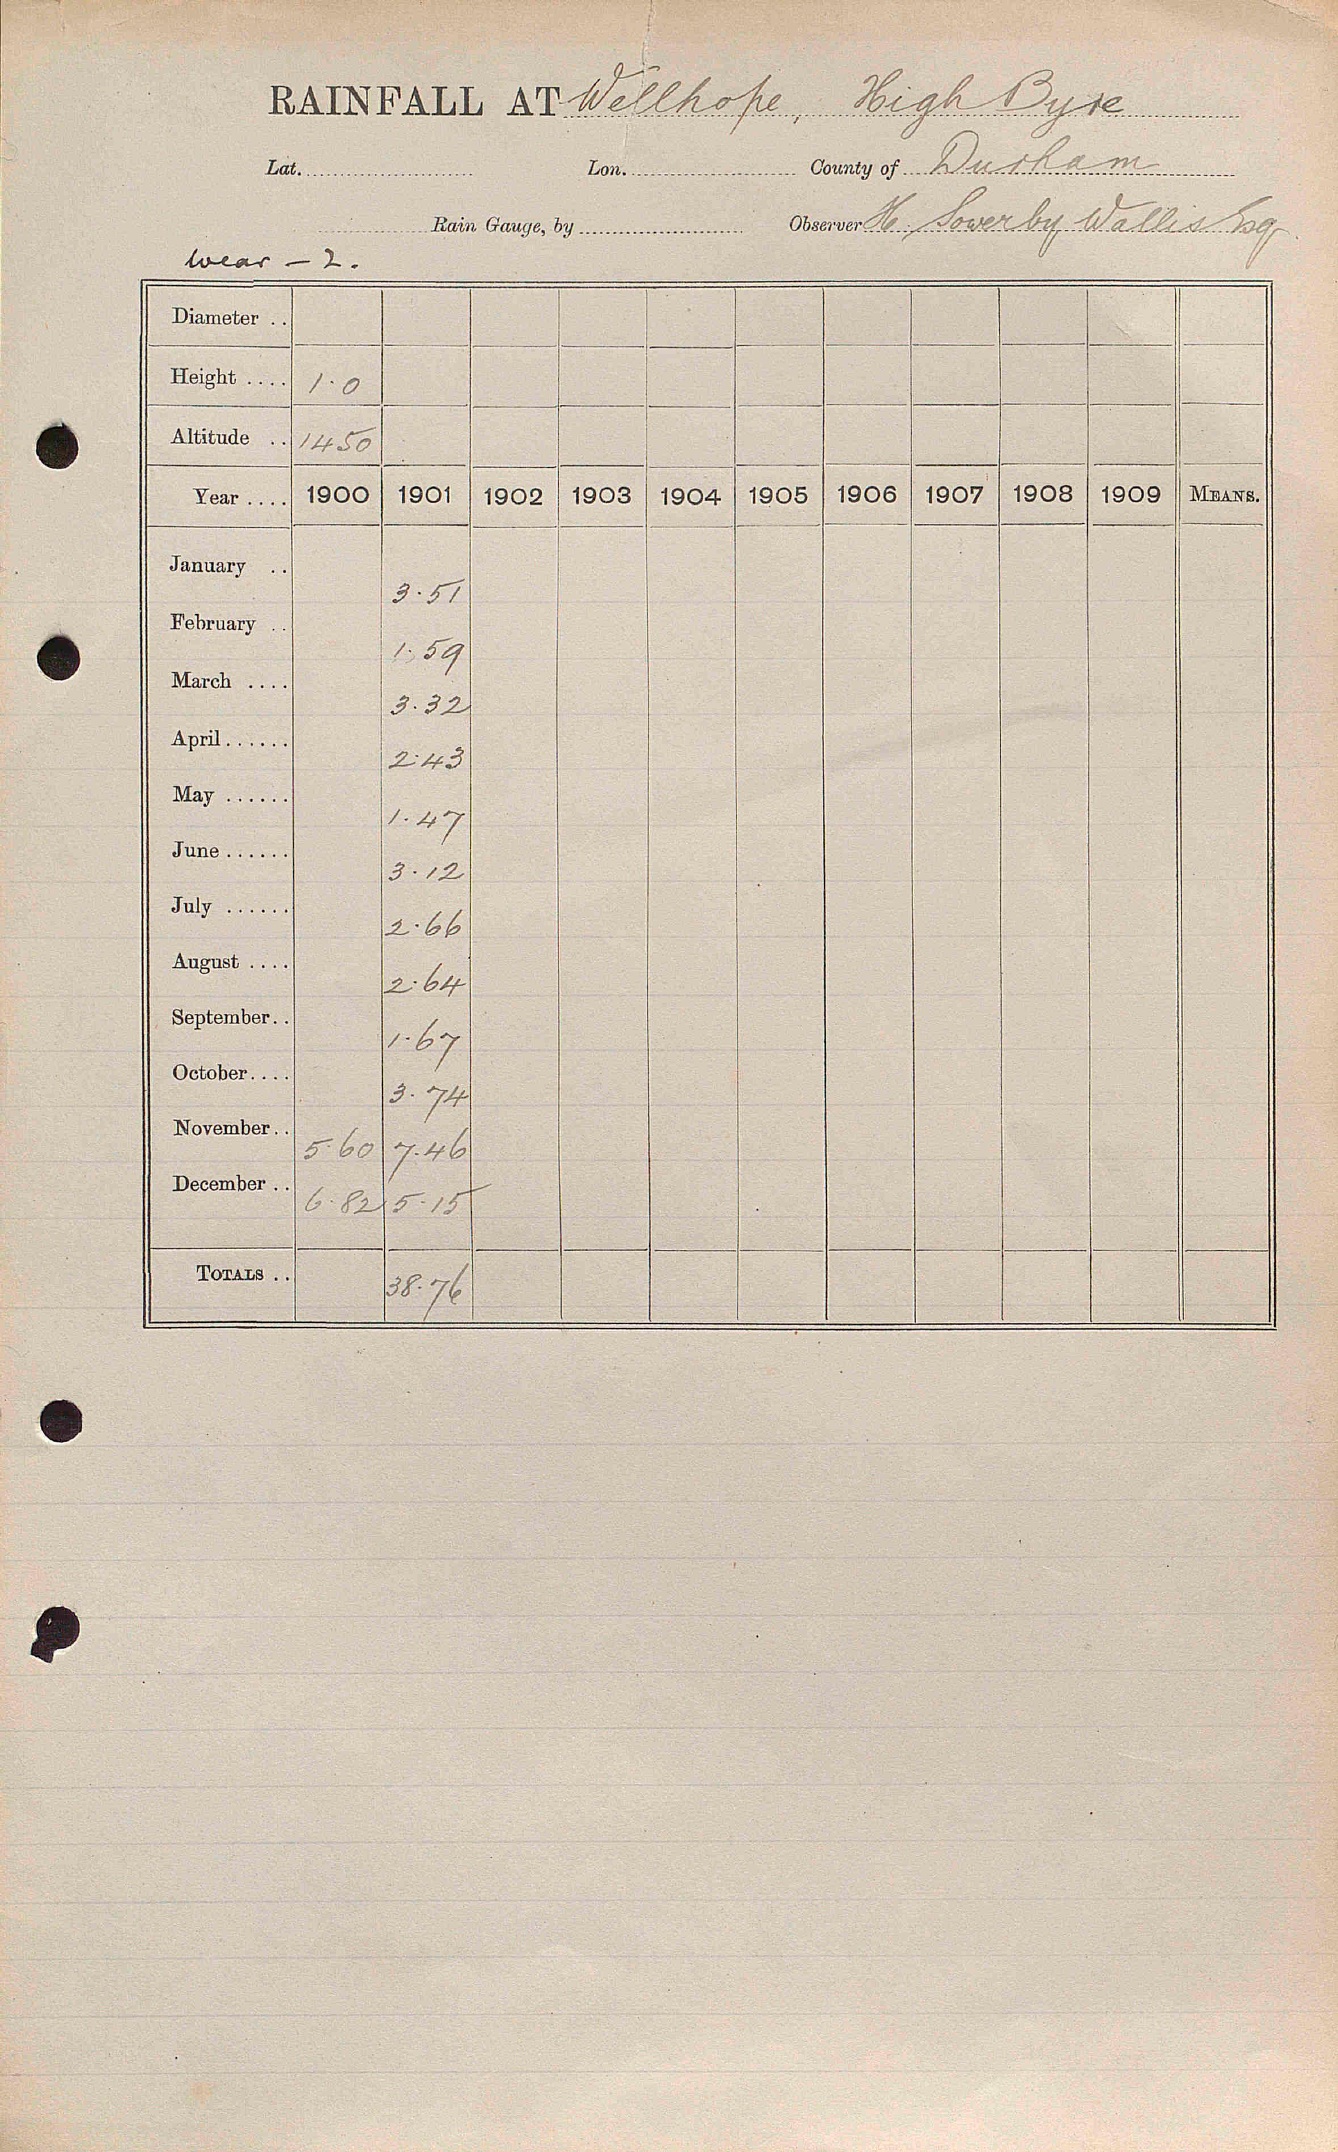 RAINFALL AT Wellhope, High Byre
Lat. Lon. County of Durham
Rain Gauge, by Observer H. Sowerby Wallis Esq
Wear - 2.
Diameter ..
Height .... 1.0
Altitude .. 1450
Year .... 1900 1901 1902 1903 1904 1905 1906 1907 1908 1909 MEANS.
January .. 3.51
February .. 1.59
March .... 3.32
April ...... 2.43
May ...... 1.47
June ...... 3.12
July ...... 2.66
August .... 2.64
September .. 1.67
October .... 3.74
November .. 5.60 7.46
December .. 6.82 5.15
TOTALS .. 38.76